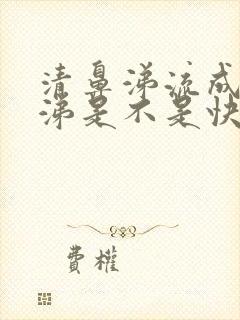 清鼻涕流成
涕是不是快
費權